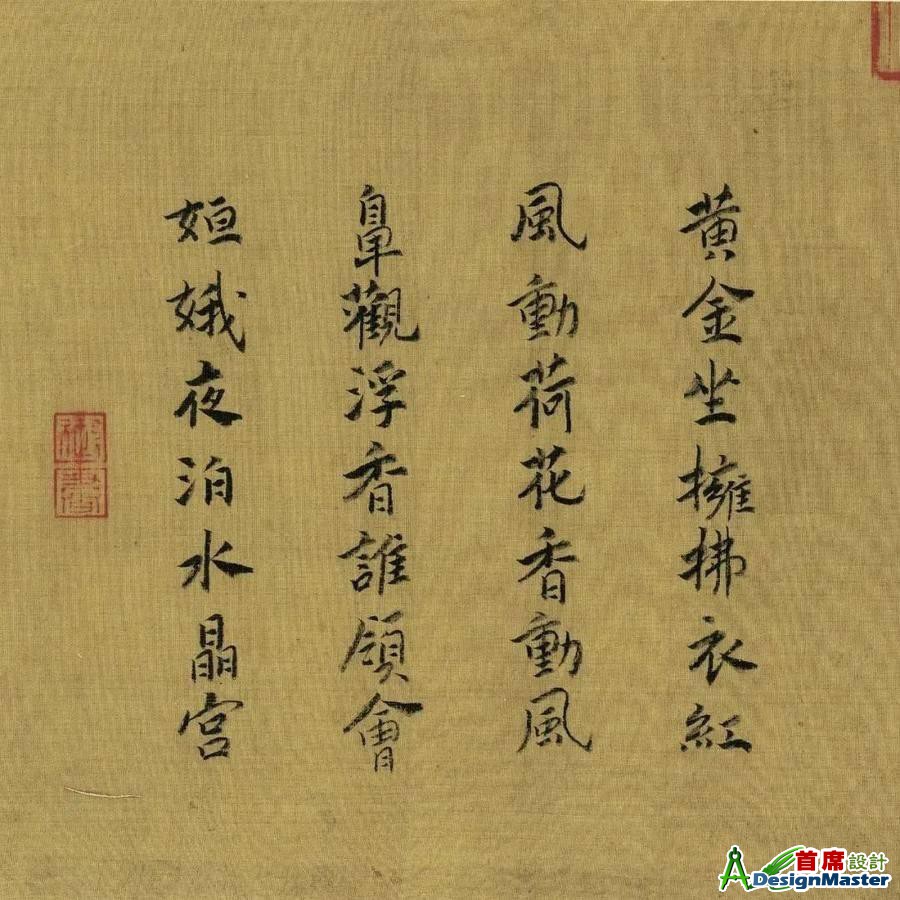 黄金坐擁拂衣紅
風動荷花香動風
鼻觀浮香誰領會
姮娥夜泊水晶宫
首席設計
DesignMaster